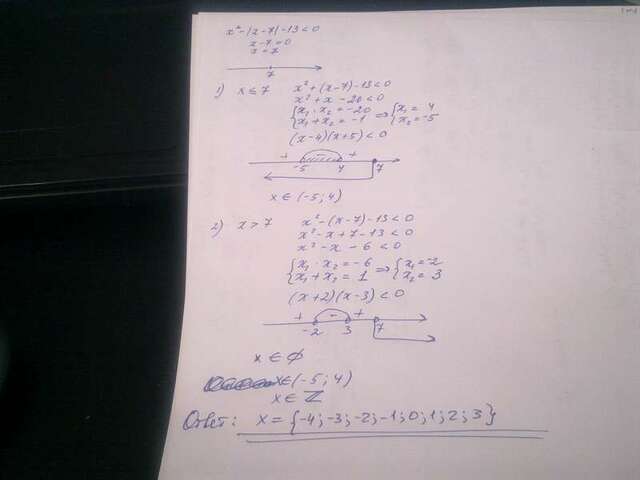 x² - |x-7| - 13 < 0
x-7=0
x=7
7
1) x ≤ 7 x² + (x-7) - 13 < 0
x² + x - 20 < 0
{x₁ · x₂ = -20
{x₁ + x₂ = -1 ⇒ {x₁ = 4
{x₂ = -5
(x-4)(x+5) < 0
+ - +
-5 4 7
x ∈ (-5; 4)
2) x > 7 x² - (x-7) - 13 < 0
x² - x + 7 - 13 < 0
x² - x - 6 < 0
{x₁ · x₂ = -6
{x₁ + x₂ = 1 ⇒ {x₁ = -2
{x₂ = 3
(x+2)(x-3) < 0
+ - +
-2 3 7
x ∈ ∅
x ∈ (-5; 4)
x ∈ ℤ
Ответ: x = {-4; -3; -2; -1; 0; 1; 2; 3}